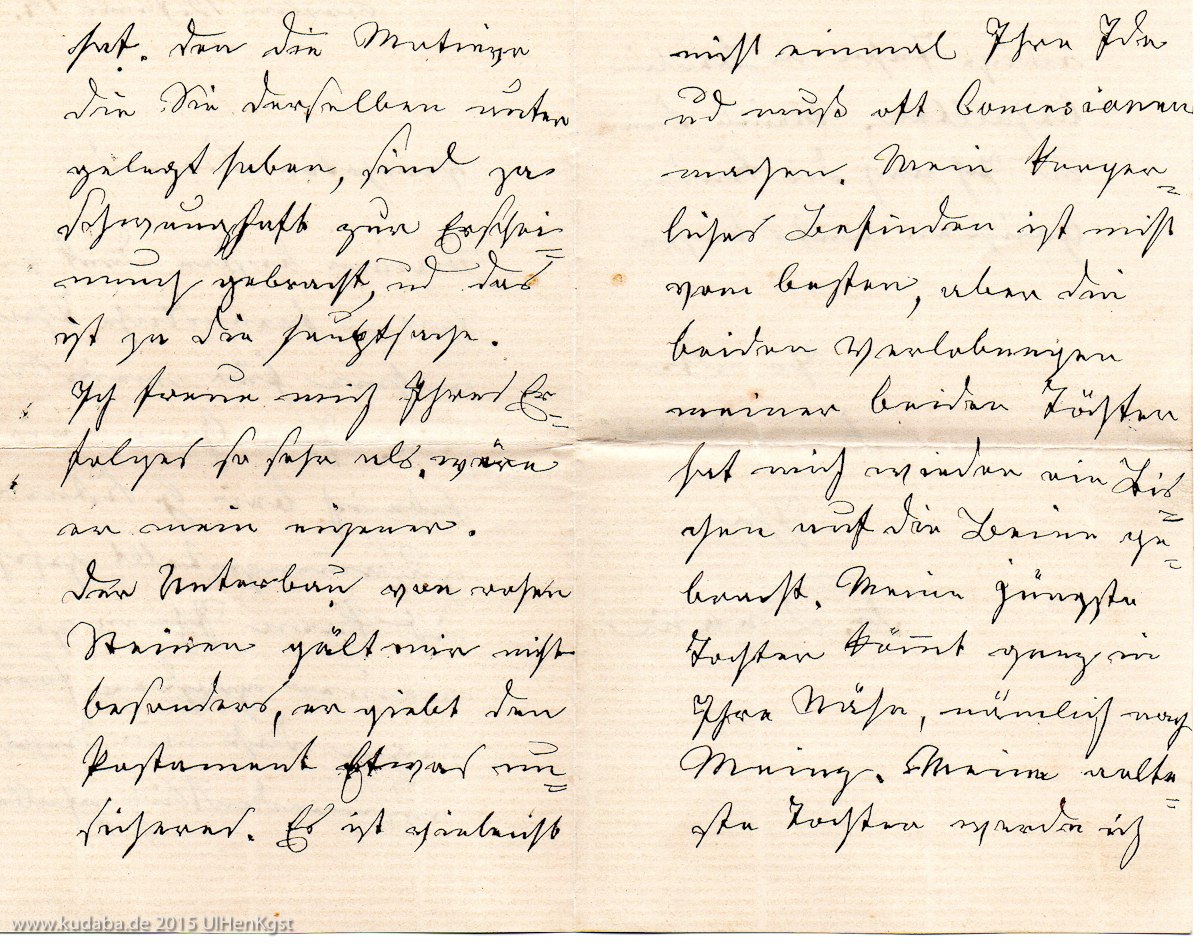 hat. Den die Motieve
die Sie derselben unter
gelegt haben, sind ja
schwunghaft zur Erschei=
nung gebracht, ud das
ist ja die Hauptsache.
Ich freue mich Ihres Er=
folges so sehr als wäre
er mein eigener.
Der Unterbau von rohen
Steinen gält mir nicht
besonders, er giebt den
Postament Etwas un=
sicheres. Es ist vieleicht
nicht einmal Ihre Ide
ud muß oft Concesionen
machen. Mein Korper=
liches Befinden ist nicht
vom besten, aber die
beiden Verlobungen
meiner beiden Töchter
hat mich wieder ein Bis=
chen auf die Beine ge=
bracht. Meine jüngste
Tochter kömmt ganz in
Ihre Nähe, nämlich nach
Meinz. Meine aelte=
ste Tochter werde ich
www.kudaba.de 2015 UlHenKgst